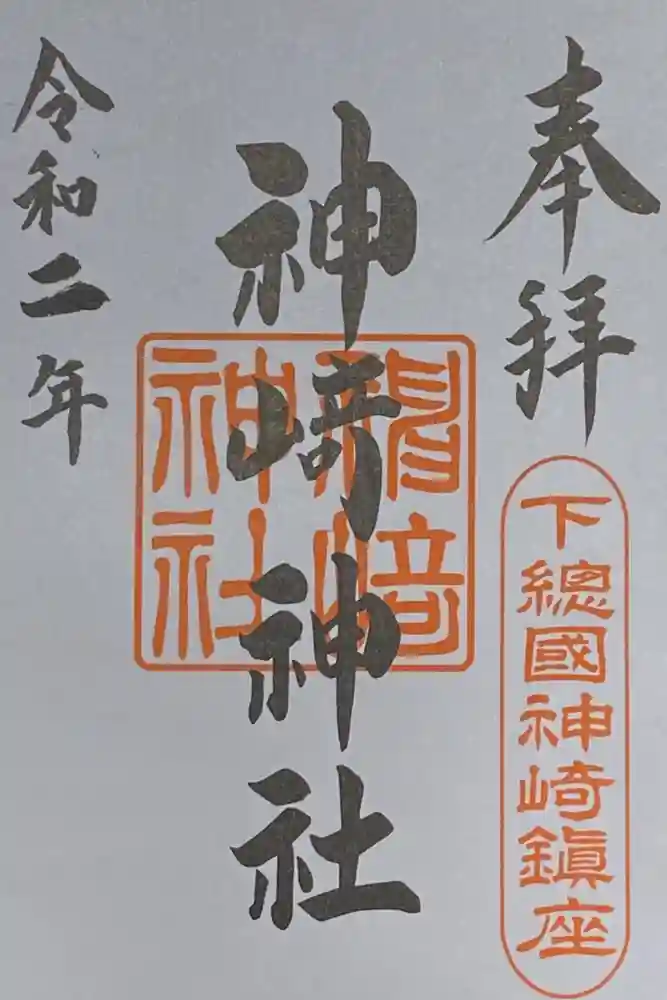 奉拝
下總國神崎鎮座
神崎神社
神崎神社
令和二年